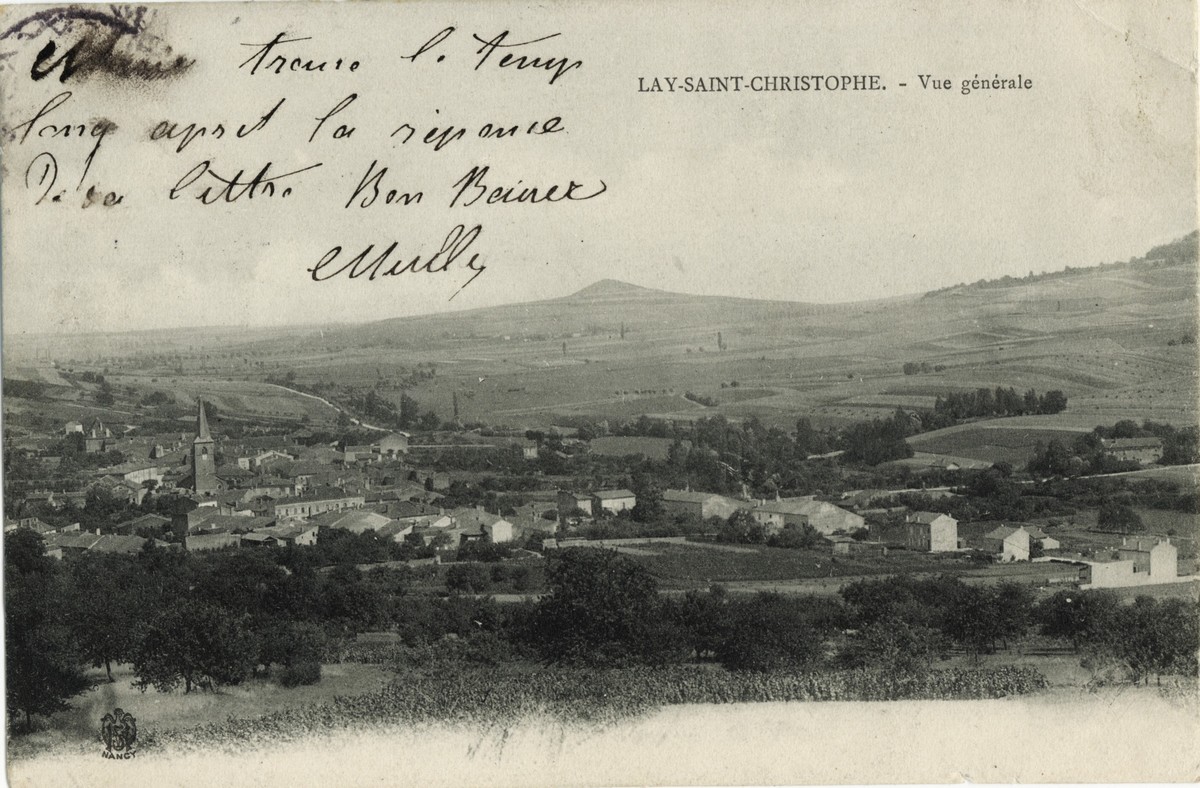 trouve le temp
long apret la réponce
De sa lettre Bon Baiser
LAY-SAINT-CHRISTOPHE. - Vue générale
NANCY